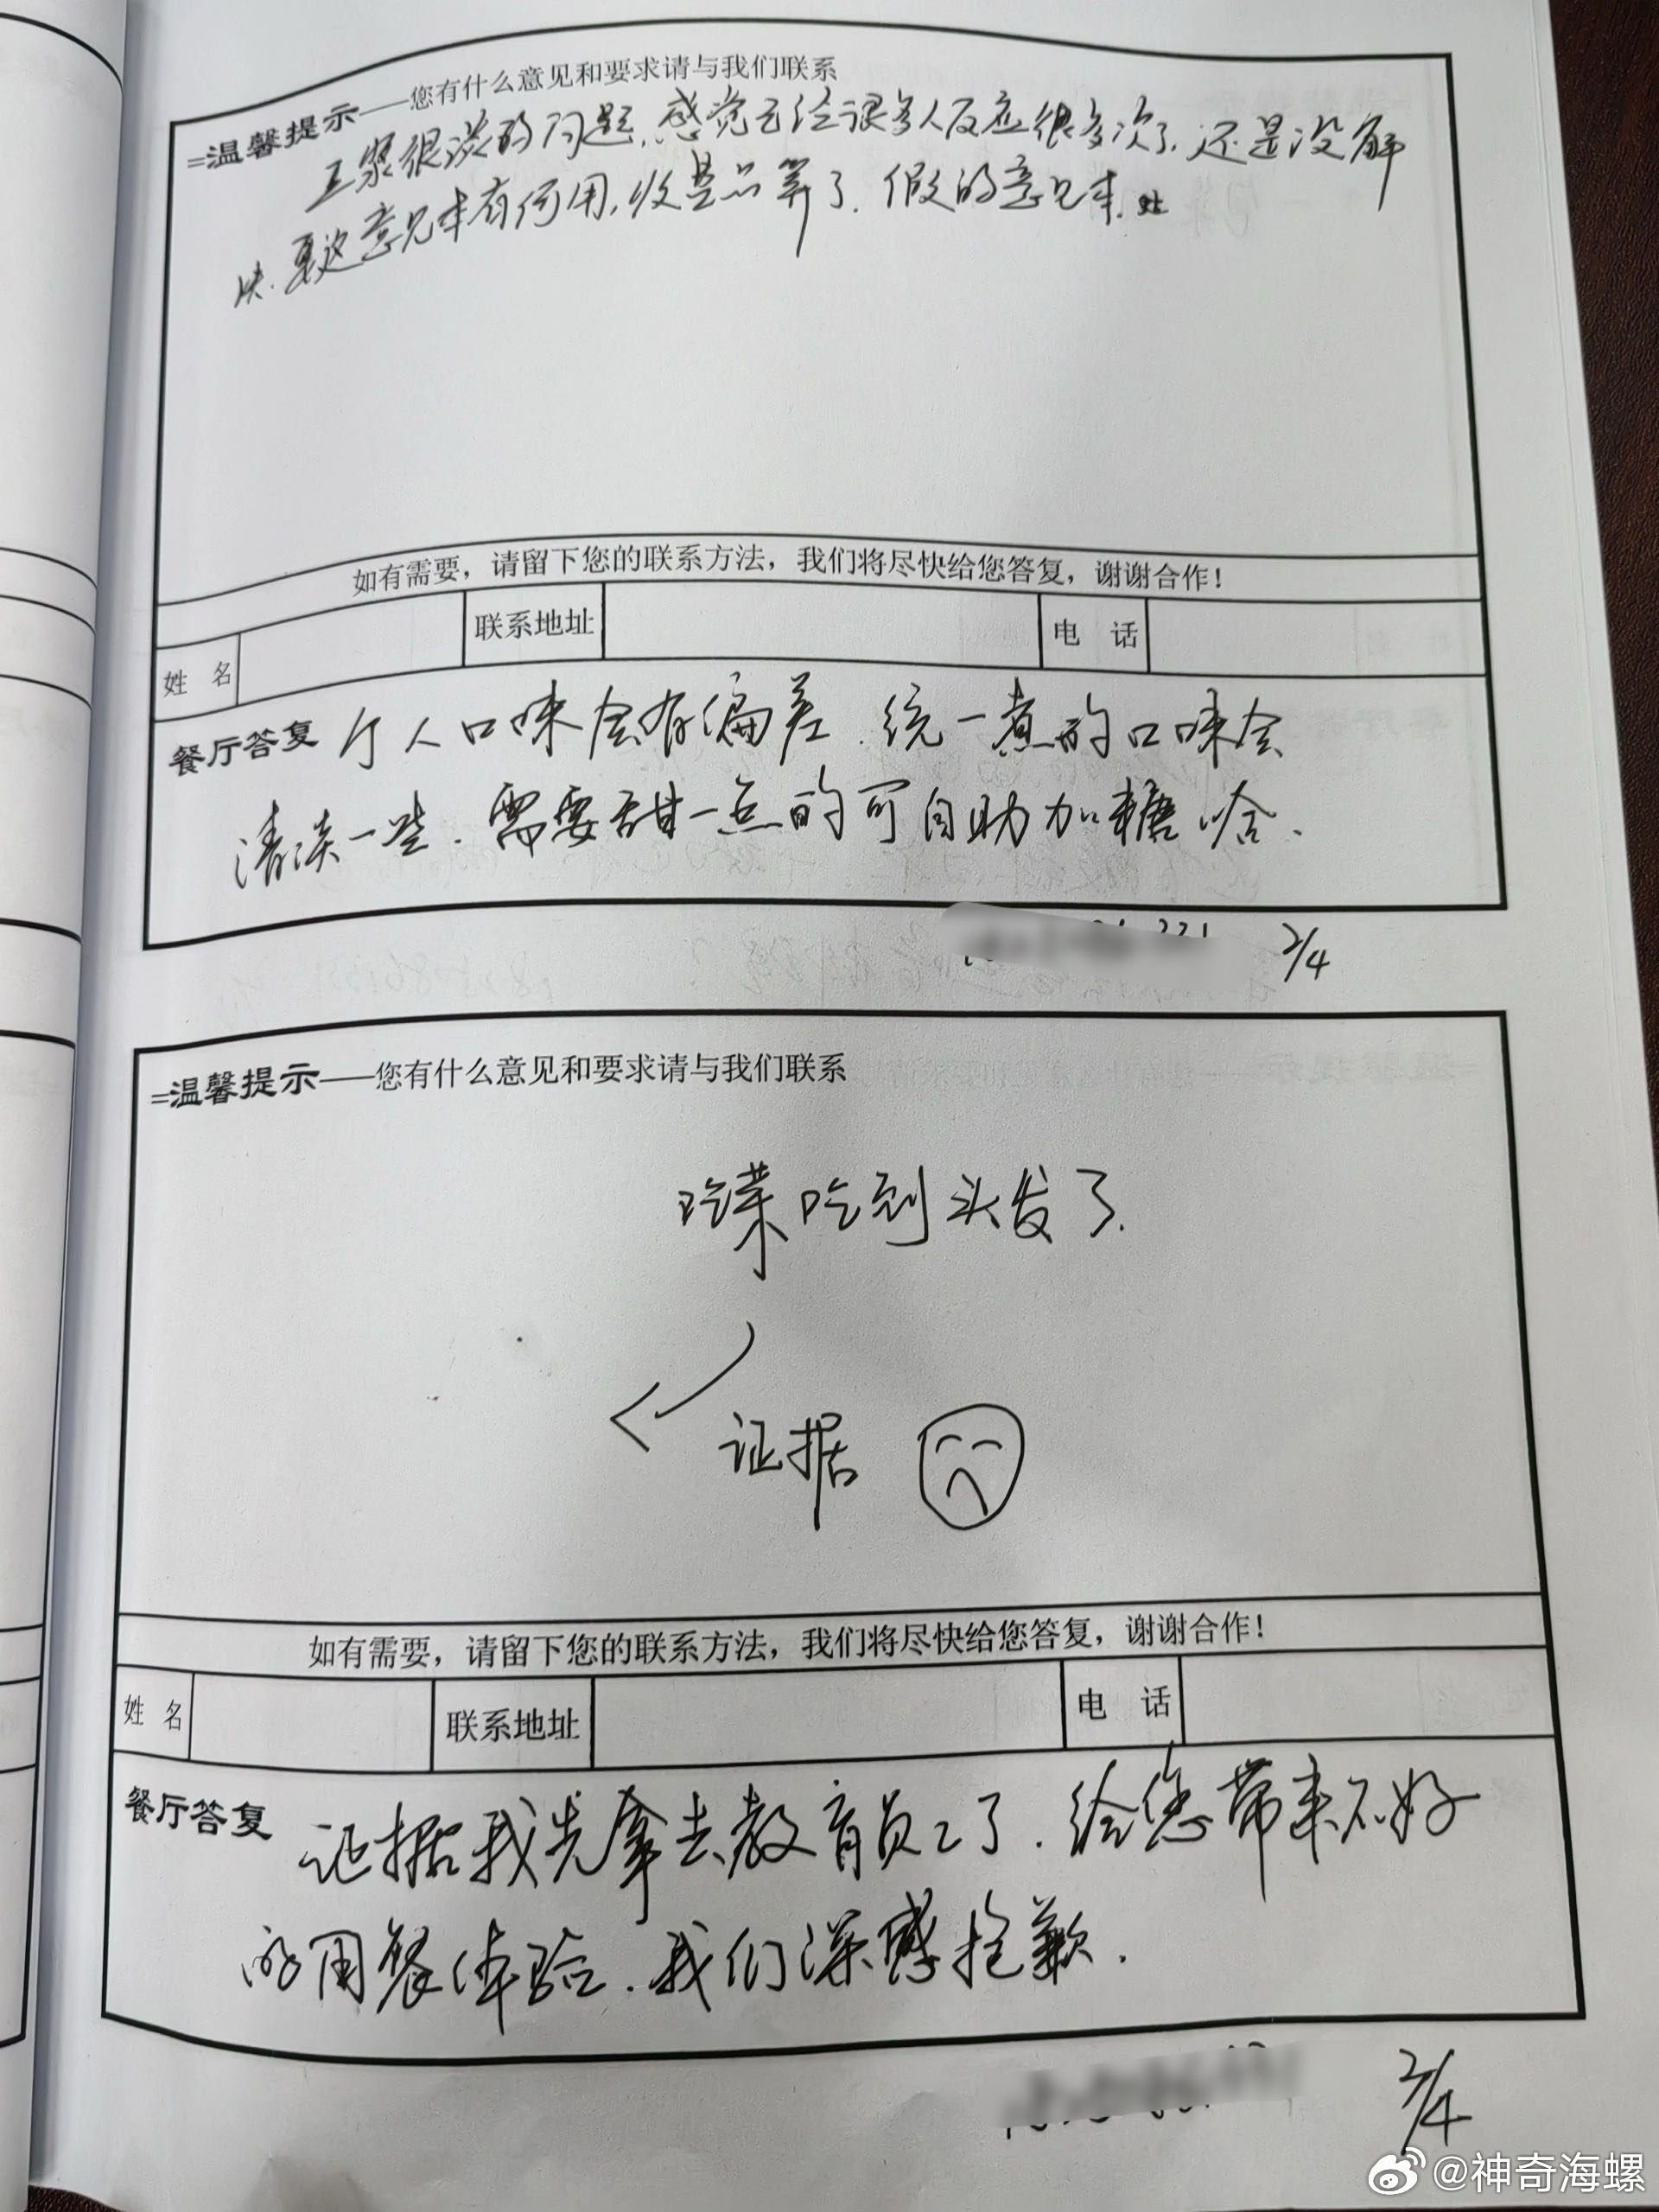 =温馨提示——您有什么意见和要求请与我们联系
豆浆很淡的问题,感觉已经很多人反应很多次了,还是没解
决.要这意见本有何用,收是只算了.假的意见本.
如有需要，请留下您的联系方法，我们将尽快给您答复，谢谢合作！
姓 名 联系地址 电 话
餐厅答复 个人口味会有偏差.统一煮的口味会
清淡一些.需要甜一点的可自助加糖哈.
2/4
=温馨提示——您有什么意见和要求请与我们联系
吃菜吃到头发了.
证据
如有需要，请留下您的联系方法，我们将尽快给您答复，谢谢合作！
姓 名 联系地址 电 话
餐厅答复 证据我先拿去教育员工了.给您带来不好
的用餐体验.我们深感抱歉.
2/4
@神奇海螺